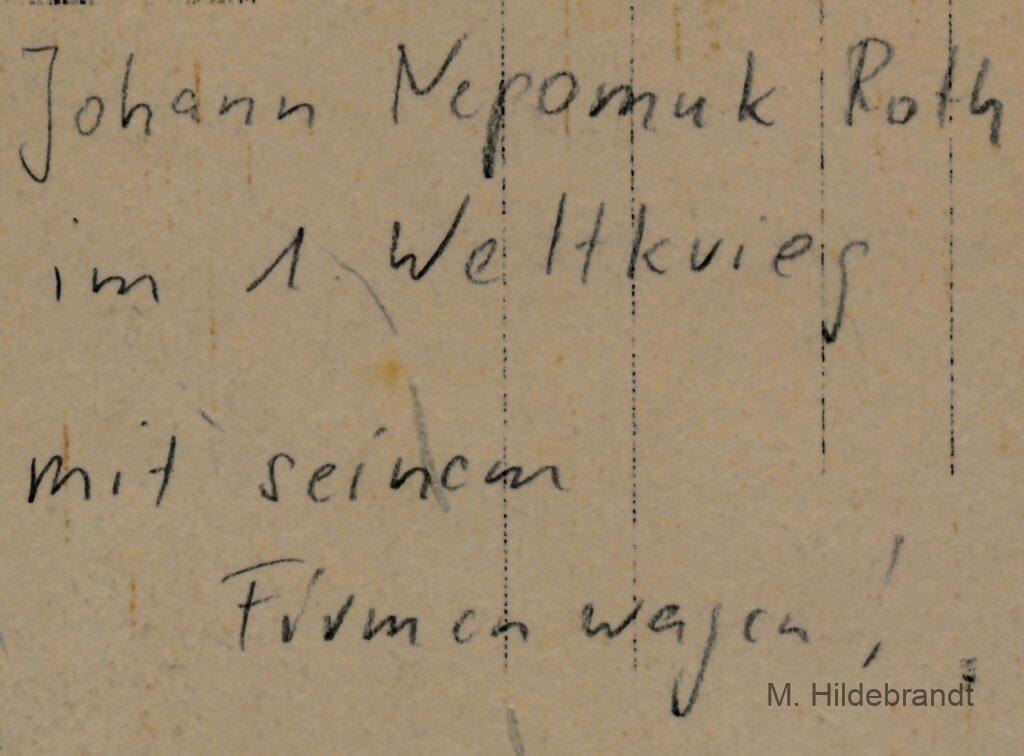 Johann Nepomuk Roth
im 1. Weltkrieg
mit seinem
Firmenwagen!
M. Hildebrandt